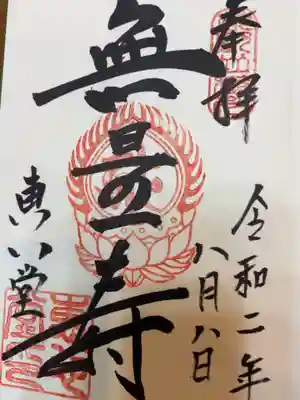 奉拝
令和二年
八月八日
無量寿
恵八堂